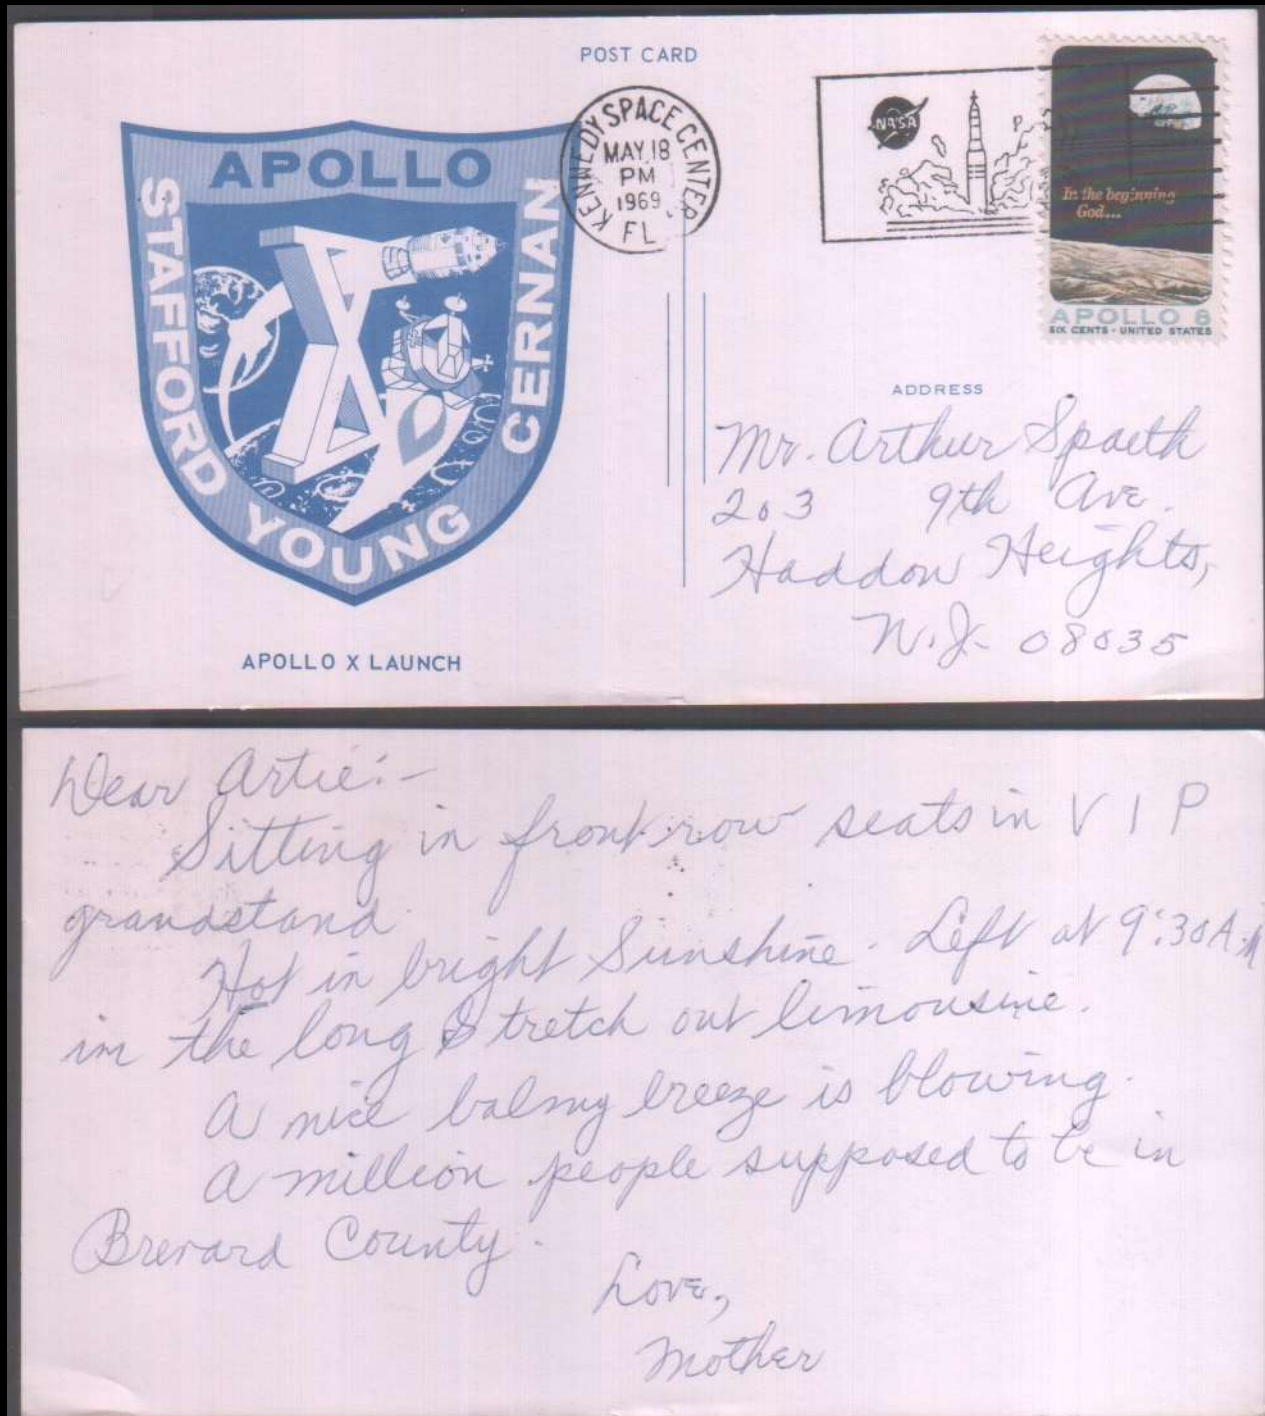 POST CARD
APOLLO
STAFFORD
YOUNG
CERNAN
APOLLO X LAUNCH
KENNEDY SPACE CENTER
MAY 18
PM
1969
FL
NASA
In the beginning
God...
APOLLO 8
SIX CENTS · UNITED STATES
ADDRESS
Mr. Arthur Spaeth
203 9th Ave.
Haddon Heights,
N.J. 08035
Dear Artie:-
Sitting in front row seats in V I P
grandstand.
Hot in bright Sunshine. Left at 9:30 A.M
in the long Stretch out limousine.
A nice balmy breeze is blowing.
A million people supposed to be in
Brevard County.
Love,
Mother